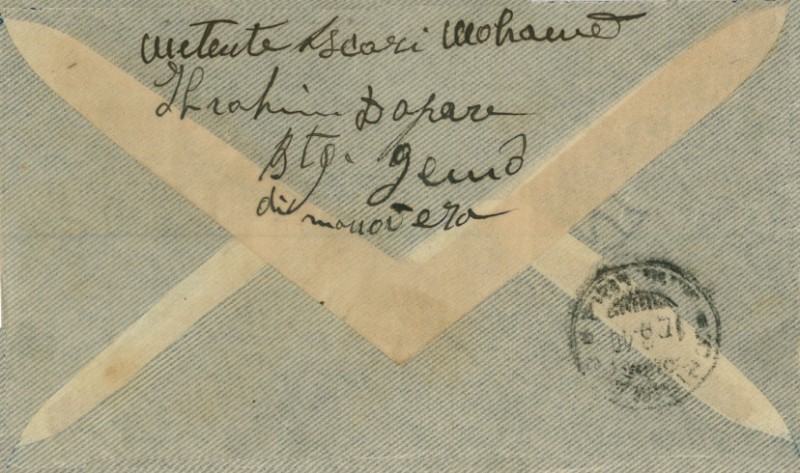 Mitente Ascari Mohamed
Ibrahim Dopare
Btg. Genio
di manovera
40